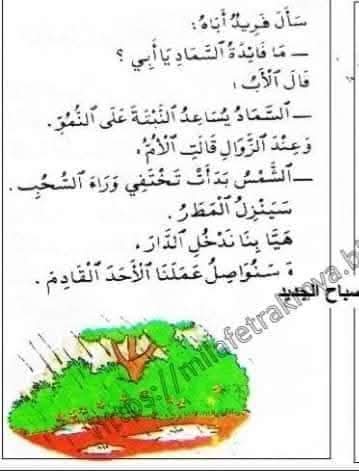 سَأَلَ فَرِيدٌ أَبَاهُ:
— مَا فَائِدَةُ ٱلسَّمَادِ يَا أَبِي ؟
قَالَ ٱلْأَبُ:
— ٱلسَّمَادُ يُسَاعِدُ ٱلنَّبْتَةَ عَلَى ٱلنُّمُوِّ.
وَعِنْدَ ٱلزَّوَالِ قَالَتِ ٱلْأُمُّ:
— ٱلشَّمْسُ بَدَأَتْ تَخْتَفِي وَرَاءَ ٱلسُّحُبِ.
سَيَنْزِلُ ٱلْمَطَرُ.
هَيَّا بِنَا نَدْخُلِ ٱلدَّارَ،
سَنُوَاصِلُ عَمَلَنَا ٱلْأَحَدَ ٱلْقَادِمَ.
صباح الجديد